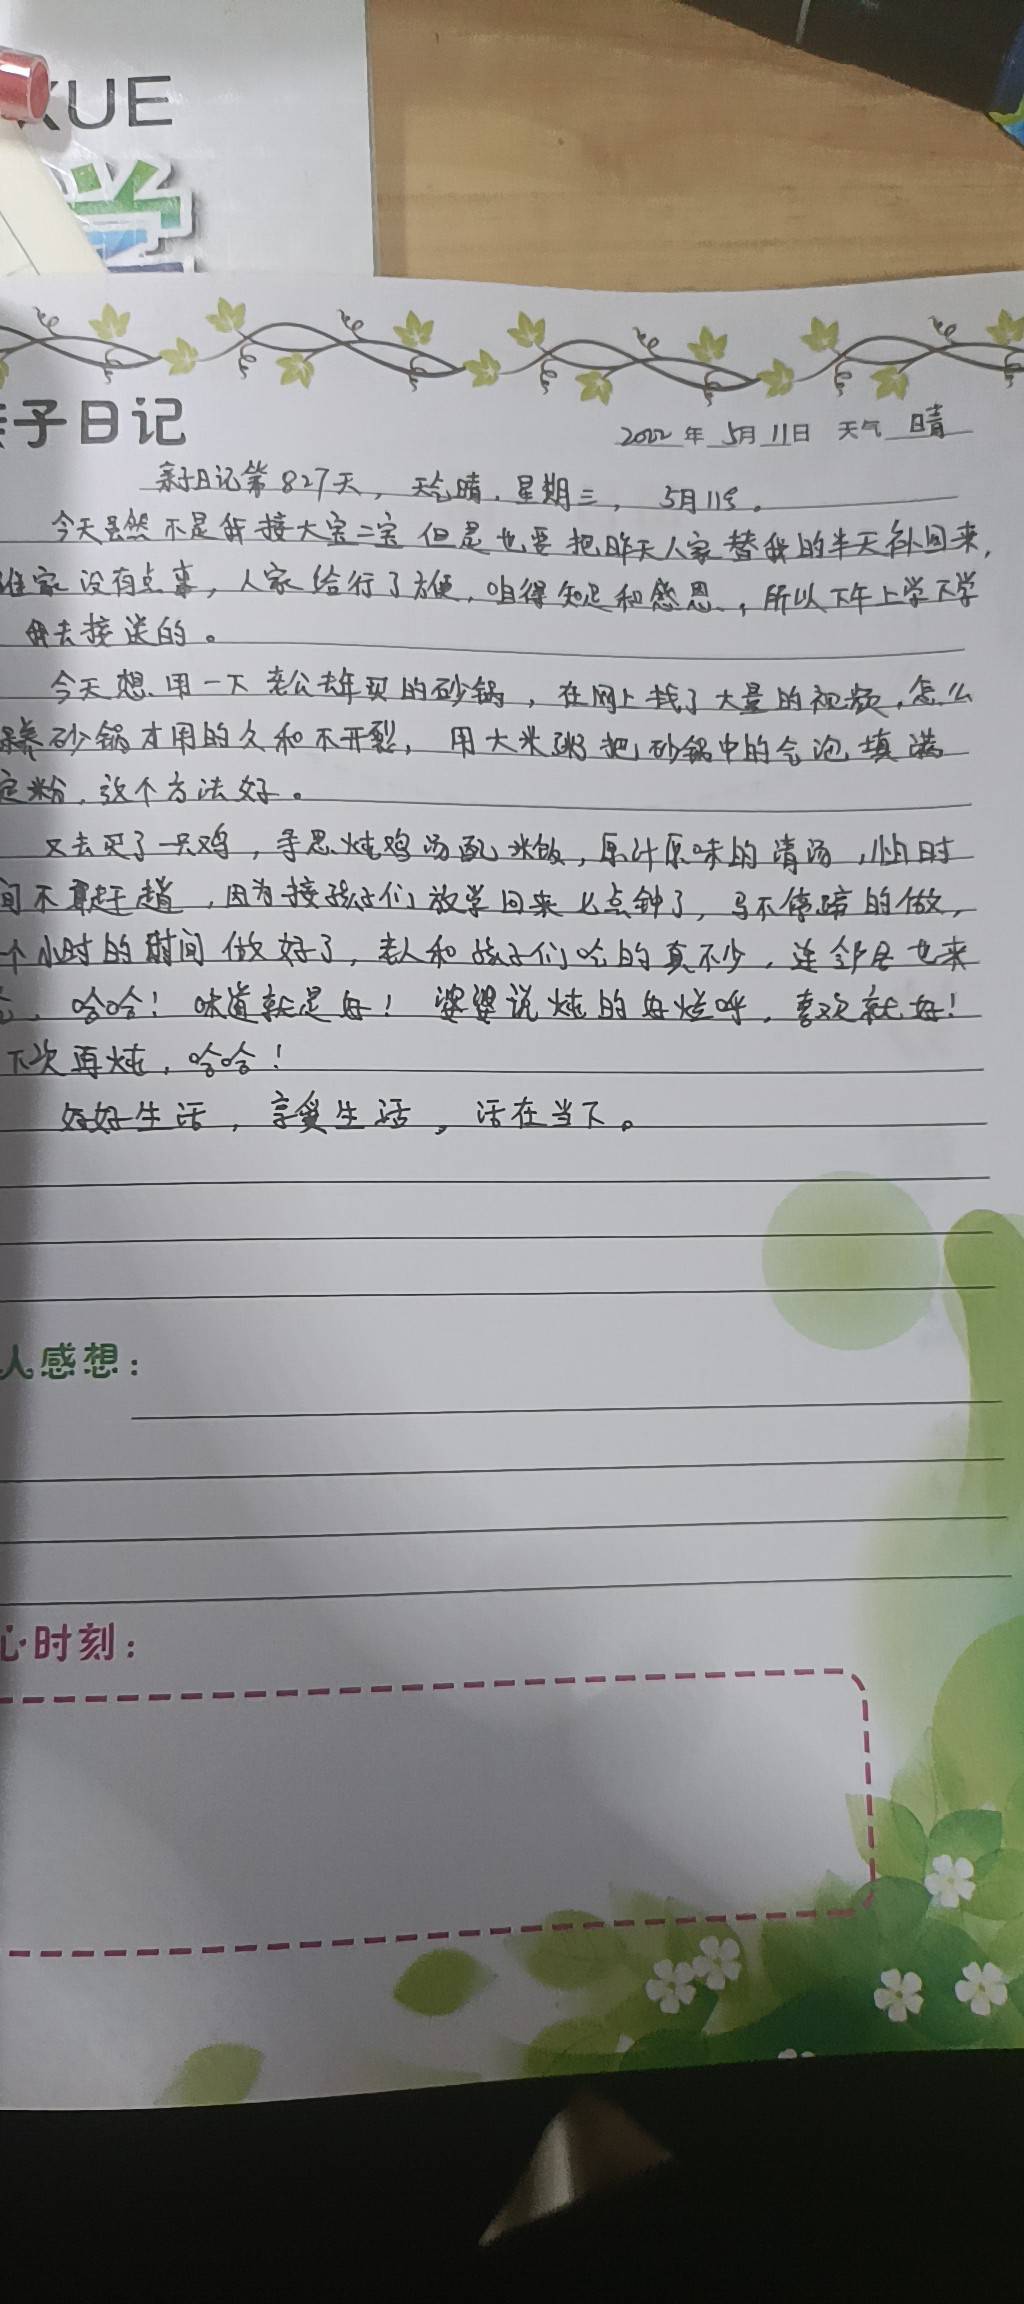 XUE
学
亲子日记
2022年 5月11日 天气 晴
亲子日记第827天，天气晴，星期三，5月11号。
今天虽然不是我接大宝二宝但是也要把昨天人家替我的半天补回来，
谁家没有点事，人家给行了方便，咱得知足和感恩，所以下午上学下学
我去接送的。
今天想用一下老公去年买的砂锅，在网上找了大量的视频，怎么
保养砂锅才用的久和不开裂，用大米粥把砂锅中的气泡填满
淀粉，这个方法好。
又去买了一只鸡，寻思炖鸡汤配米饭，原汁原味的清汤，怕时
间不算赶趟，因为接孩子们放学回来七点钟了，马不停蹄的做，
个小时的时间做好了，老人和孩子们吃的真不少，连邻居也来
，哈哈！味道就是好！婆婆说炖的好烂呼，喜欢就好！
下次再炖，哈哈！
好好生活，享受生活，活在当下。
人感想：
心时刻：